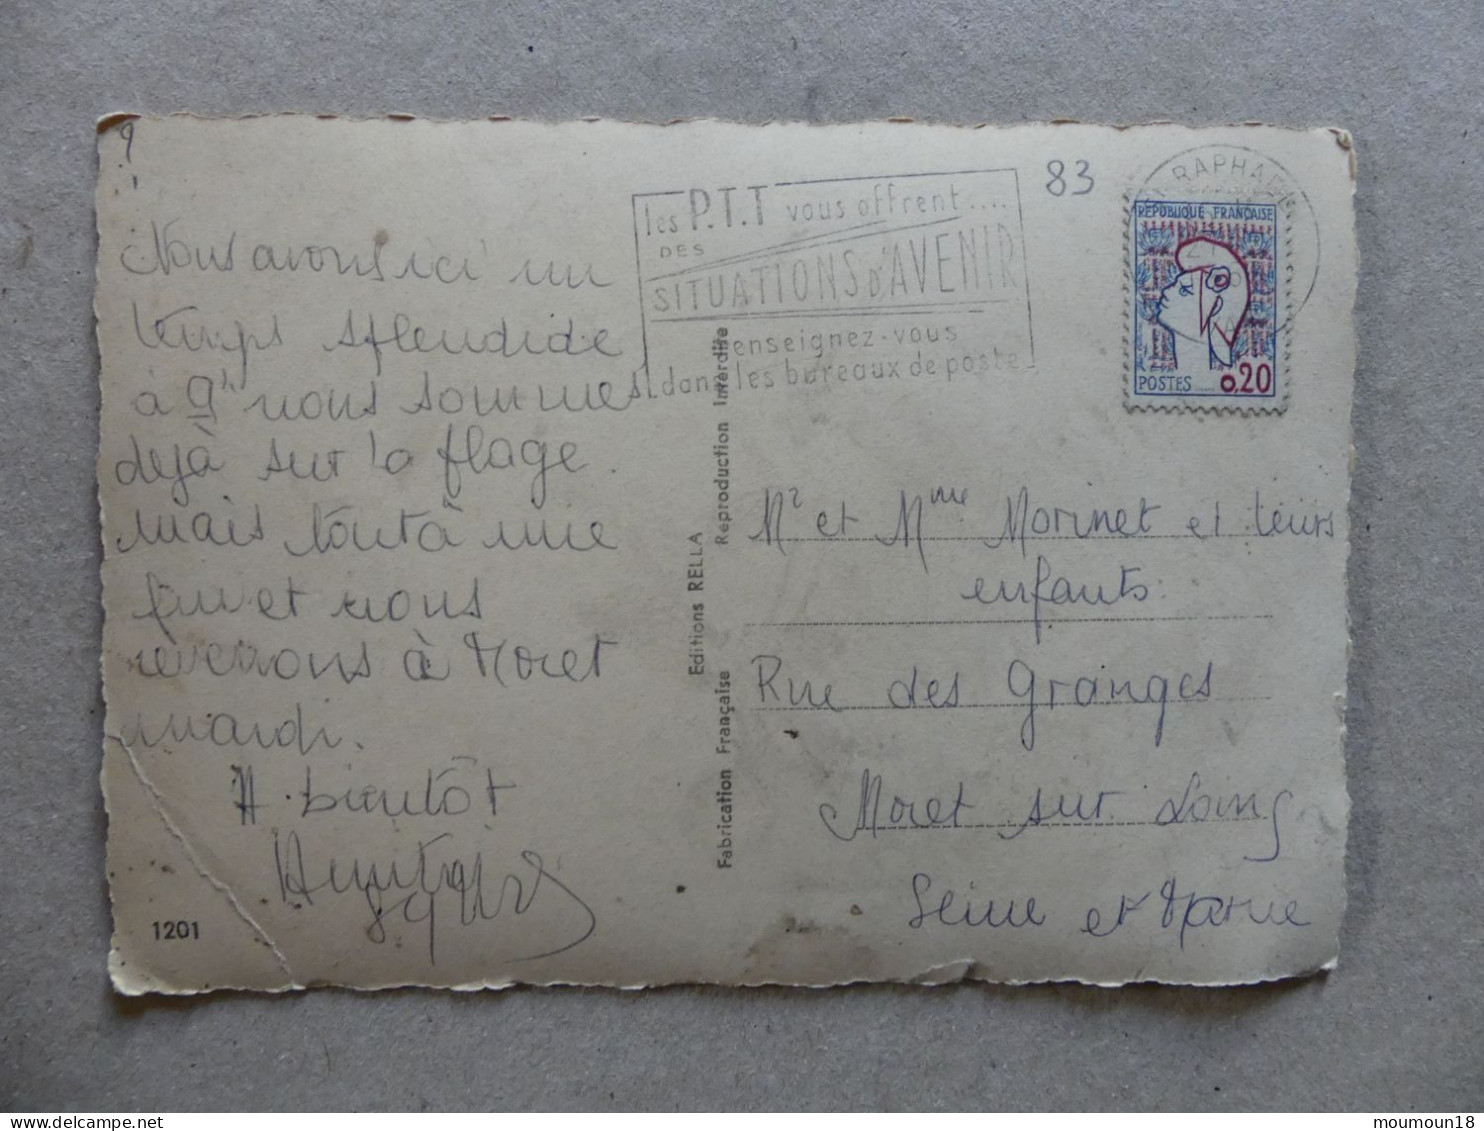 9
Nous avons ici un
temps splendide
à 9h nous sommes
déjà sur la plage.
mais tout à une
fin et nous
reverrons à Moret
mardi.
A bientôt
1201
les P.T.T vous offrent....
DES
SITUATIONS D'AVENIR
renseignez-vous
dans les bureaux de poste
83
ST RAPHAEL
RÉPUBLIQUE FRANÇAISE
POSTES 0,20
Editions RELLA
Fabrication Française Reproduction Interdite
Mr et Mme Morinet et leurs
enfants.
Rue des Granges
Moret sur Loing
Seine et Marne
moumoun18